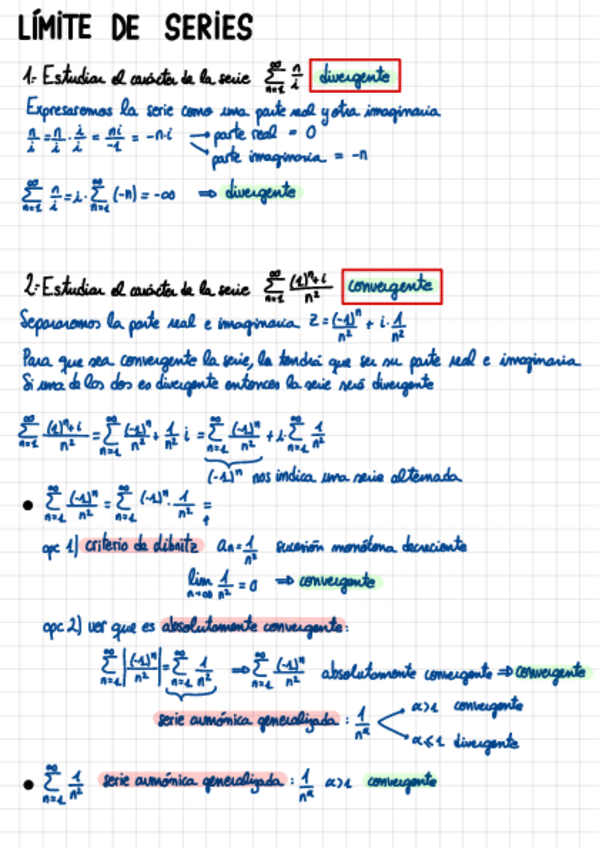 LÍMITE DE SERIES
1- Estudiar el carácter de la serie ∑_{n=1}^{∞} n/i divergente
Expresaremos la serie como una parte real y otra imaginaria
n/i = n/i · i/i = ni/-1 = -n·i → parte real = 0
→ parte imaginaria = -n
∑_{n=1}^{∞} n/i = i·∑_{n=1}^{∞} (-n) = -∞ ⇒ divergente
2- Estudiar el carácter de la serie ∑_{n=1}^{∞} ((-1)^n+i)/n² convergente
Separaremos la parte real e imaginaria z = (-1)^n/n² + i·1/n²
Para que sea convergente la serie, la tendrá que ser su parte real e imaginaria
Si una de las dos es divergente entonces la serie será divergente
∑_{n=1}^{∞} ((-1)^n+i)/n² = ∑_{n=1}^{∞} (-1)^n/n² + 1/n² i = ∑_{n=1}^{∞} (-1)^n/n² + i·∑_{n=1}^{∞} 1/n²
(-1)^n nos indica una serie alternada
• ∑_{n=1}^{∞} (-1)^n/n² = ∑_{n=1}^{∞} (-1)^n · 1/n² =
opc 1) criterio de dibnitz an = 1/n² sucesión monótona decreciente
lim_{n→∞} 1/n² = 0 ⇒ convergente
opc 2) ver que es absolutamente convergente:
∑_{n=1}^{∞} |(-1)^n/n²| = ∑_{n=1}^{∞} 1/n² ⇒ ∑_{n=1}^{∞} (-1)^n/n² absolutamente convergente ⇒ convergente
serie armónica generalizada : 1/n^α α>1 convergente
α≤1 divergente
• ∑_{n=1}^{∞} 1/n² serie armónica generalizada : 1/n^α α>1 convergente